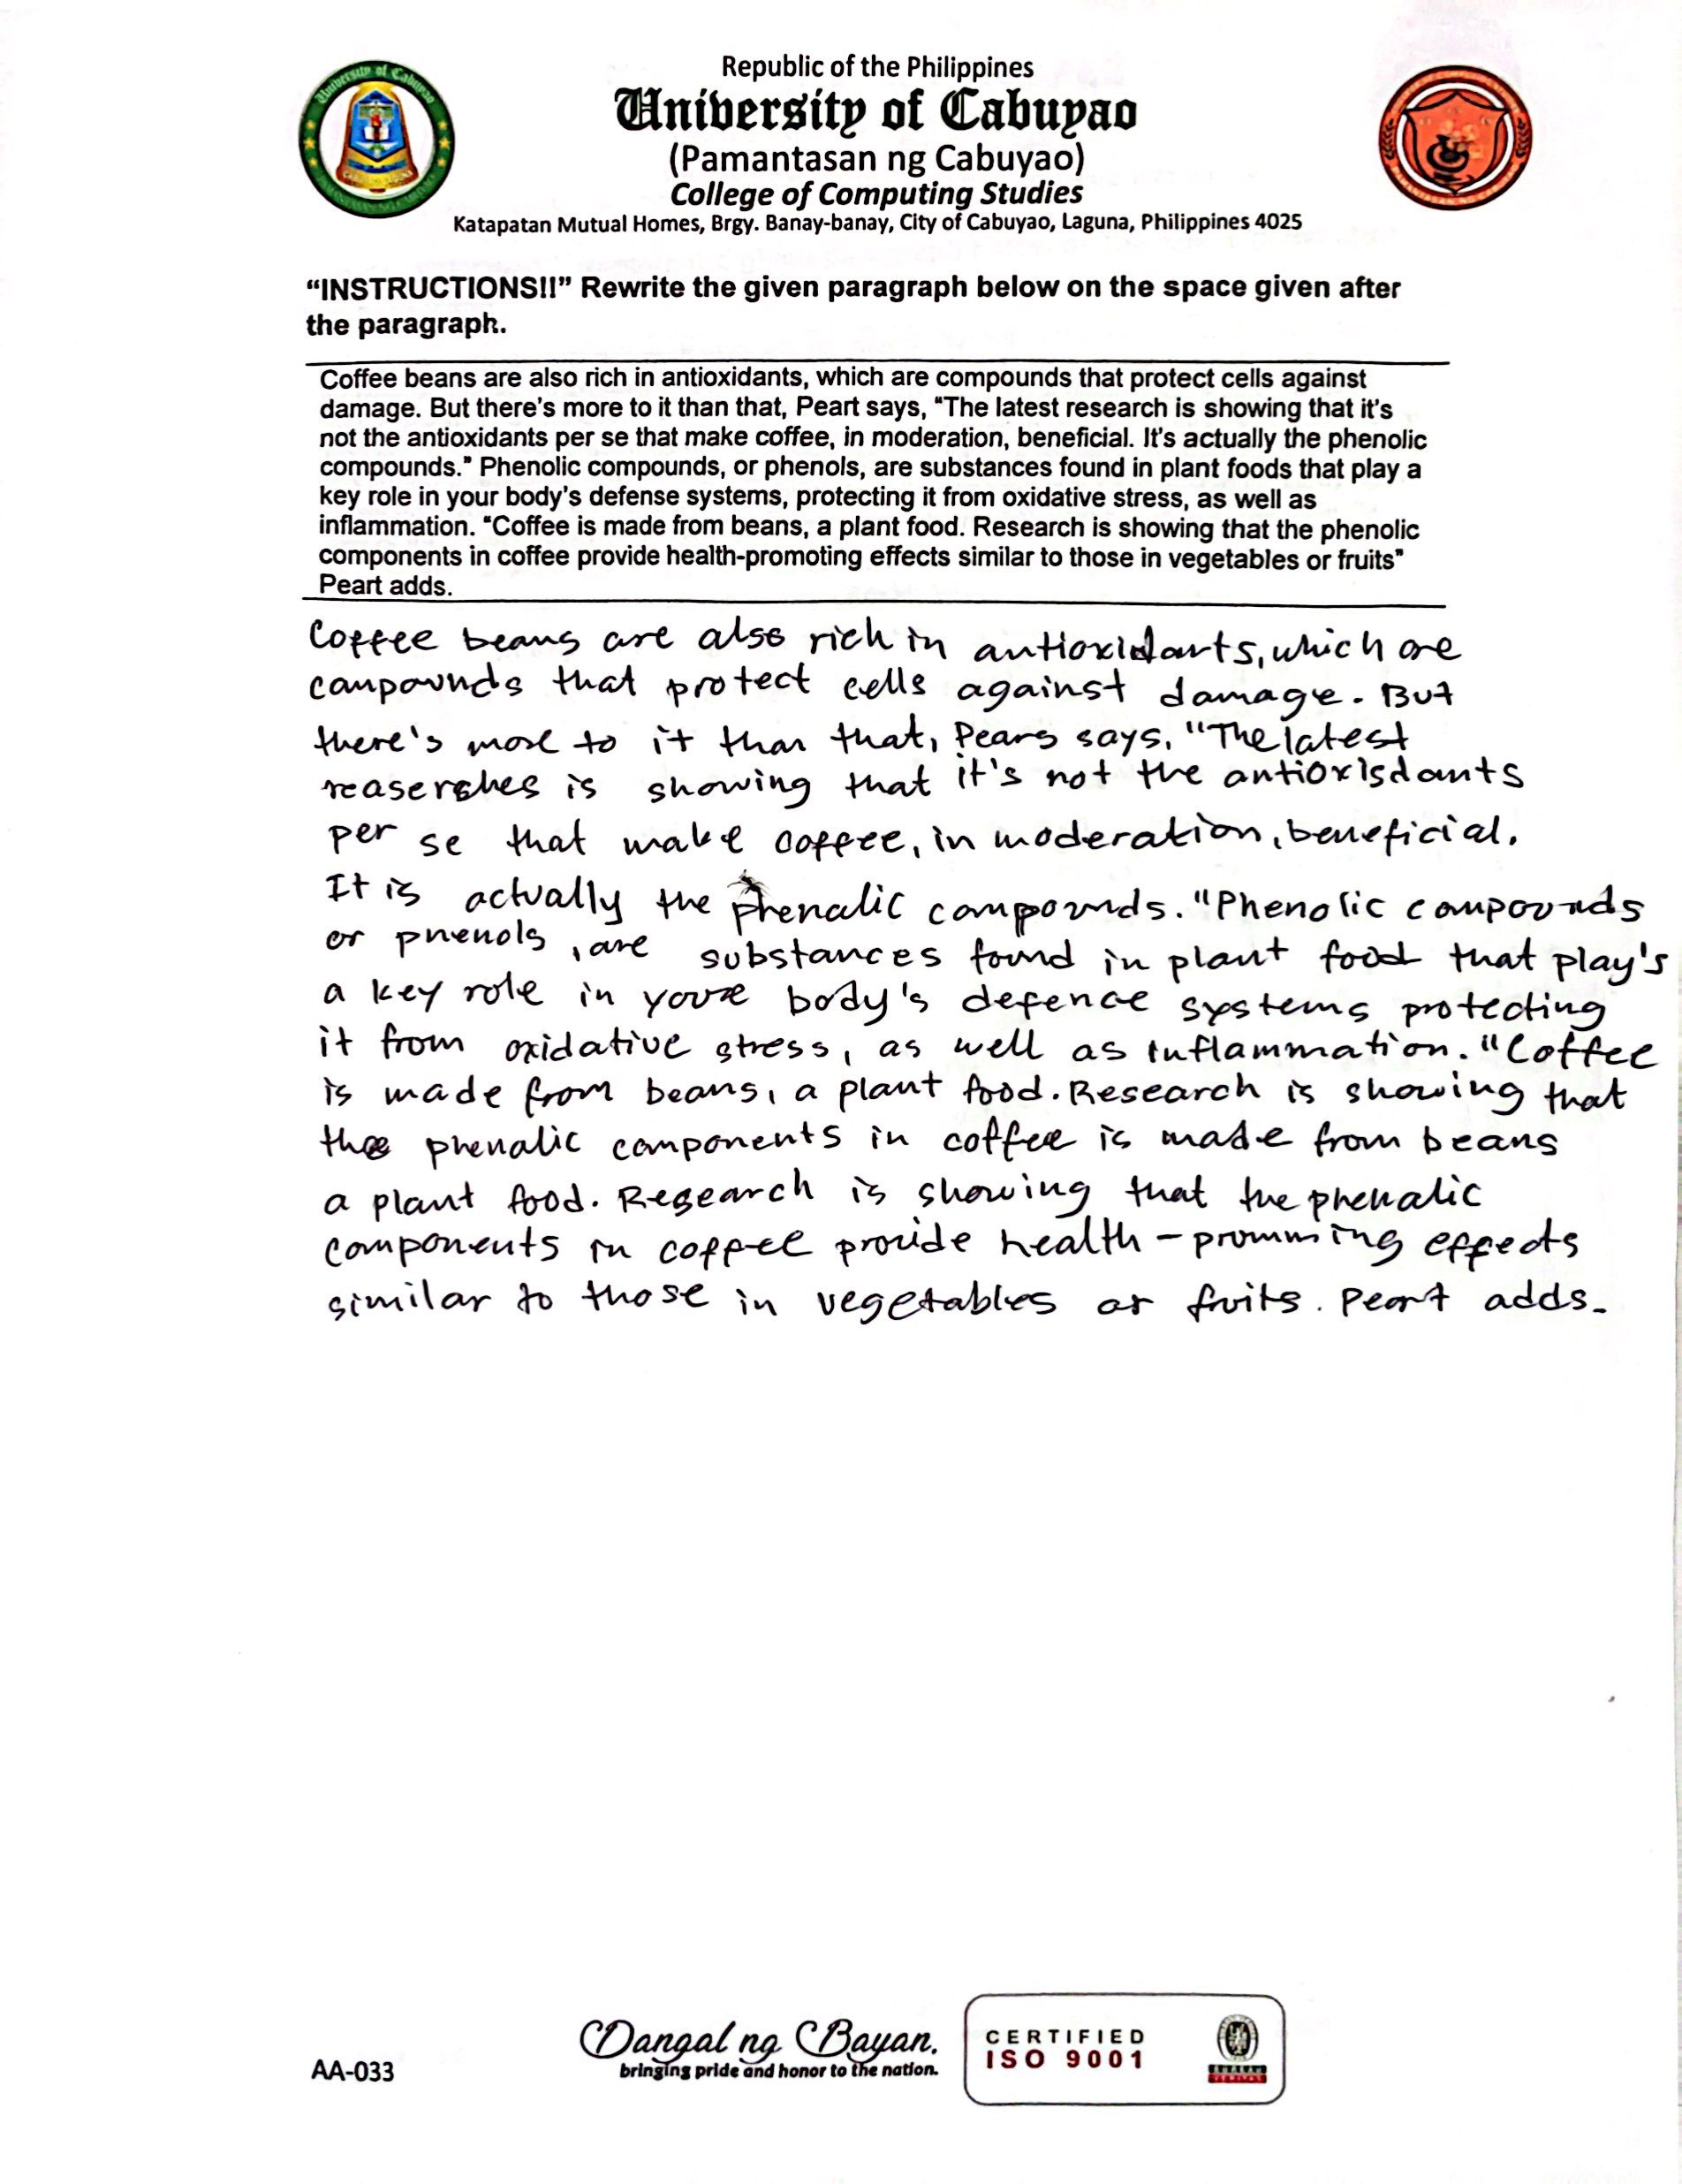 Republic of the Philippines
University of Cabuyao
(Pamantasan ng Cabuyao)
College of Computing Studies
Katapatan Mutual Homes, Brgy. Banay-banay, City of Cabuyao, Laguna, Philippines 4025
“INSTRUCTIONS!!” Rewrite the given paragraph below on the space given after
the paragraph.
Coffee beans are also rich in antioxidants, which are compounds that protect cells against
damage. But there's more to it than that, Peart says, "The latest research is showing that it's
not the antioxidants per se that make coffee, in moderation, beneficial. It's actually the phenolic
compounds." Phenolic compounds, or phenols, are substances found in plant foods that play a
key role in your body's defense systems, protecting it from oxidative stress, as well as
inflammation. "Coffee is made from beans, a plant food. Research is showing that the phenolic
components in coffee provide health-promoting effects similar to those in vegetables or fruits"
Peart adds.
Coffee beans are also rich in antioxidants, which are
compounds that protect cells against damage. But
there's more to it than that, Pears says, "The latest
reaserches is showing that it's not the antioxisdants
per se that make coffee, in moderation, beneficial.
It is actually the phenalic compounds. "Phenolic compounds
or phenols, are substances found in plant food that play's
a key role in your body's defence systems protecting
it from oxidative stress, as well as inflammation. "Coffee
is made from beans, a plant food. Research is showing that
the phenalic components in coffee is made from beans
a plant food. Research is showing that the phenalic
components in coffee provide health - promming effects
similar to those in vegetables or fruits. Peart adds.
AA-033
Dangal ng Bayan.
bringing pride and honor to the nation.
CERTIFIED
ISO 9001